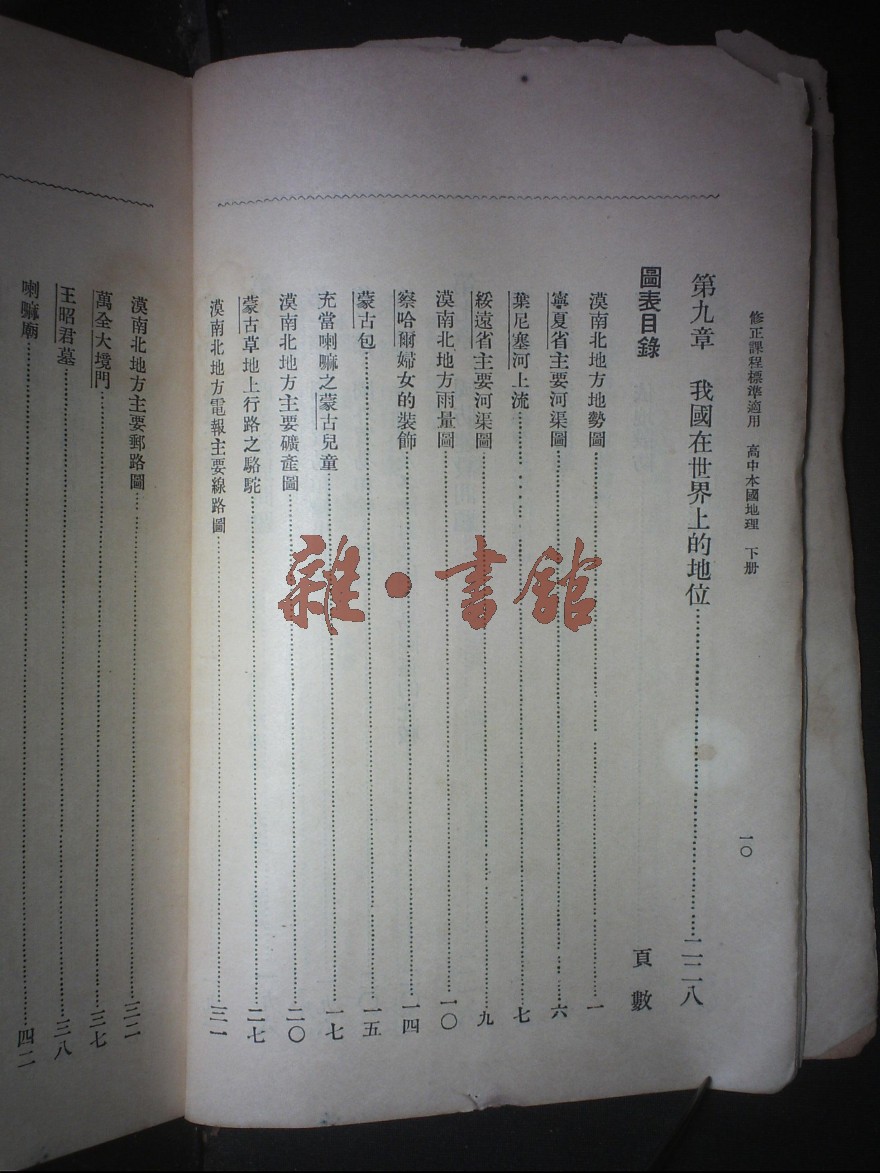 修正課程標準適用　高中本國地理　下册
一〇
第九章　我國在世界上的地位……二二八
圖表目錄
頁數
漠南北地方地勢圖……一
寧夏省主要河渠圖……六
葉尼塞河上流……七
綏遠省主要河渠圖……九
漠南北地方雨量圖……一〇
察哈爾婦女的装飾……一四
蒙古包……一五
充當喇嘛之蒙古兒童……一七
漠南北地方主要礦產圖……二〇
蒙古草地上行路之駱駝……二七
漠南北地方電報主要線路圖……三一
漠南北地方主要郵路圖……三二
萬全大境門……三七
王昭君墓……三八
喇嘛廟……四二
雜·書館